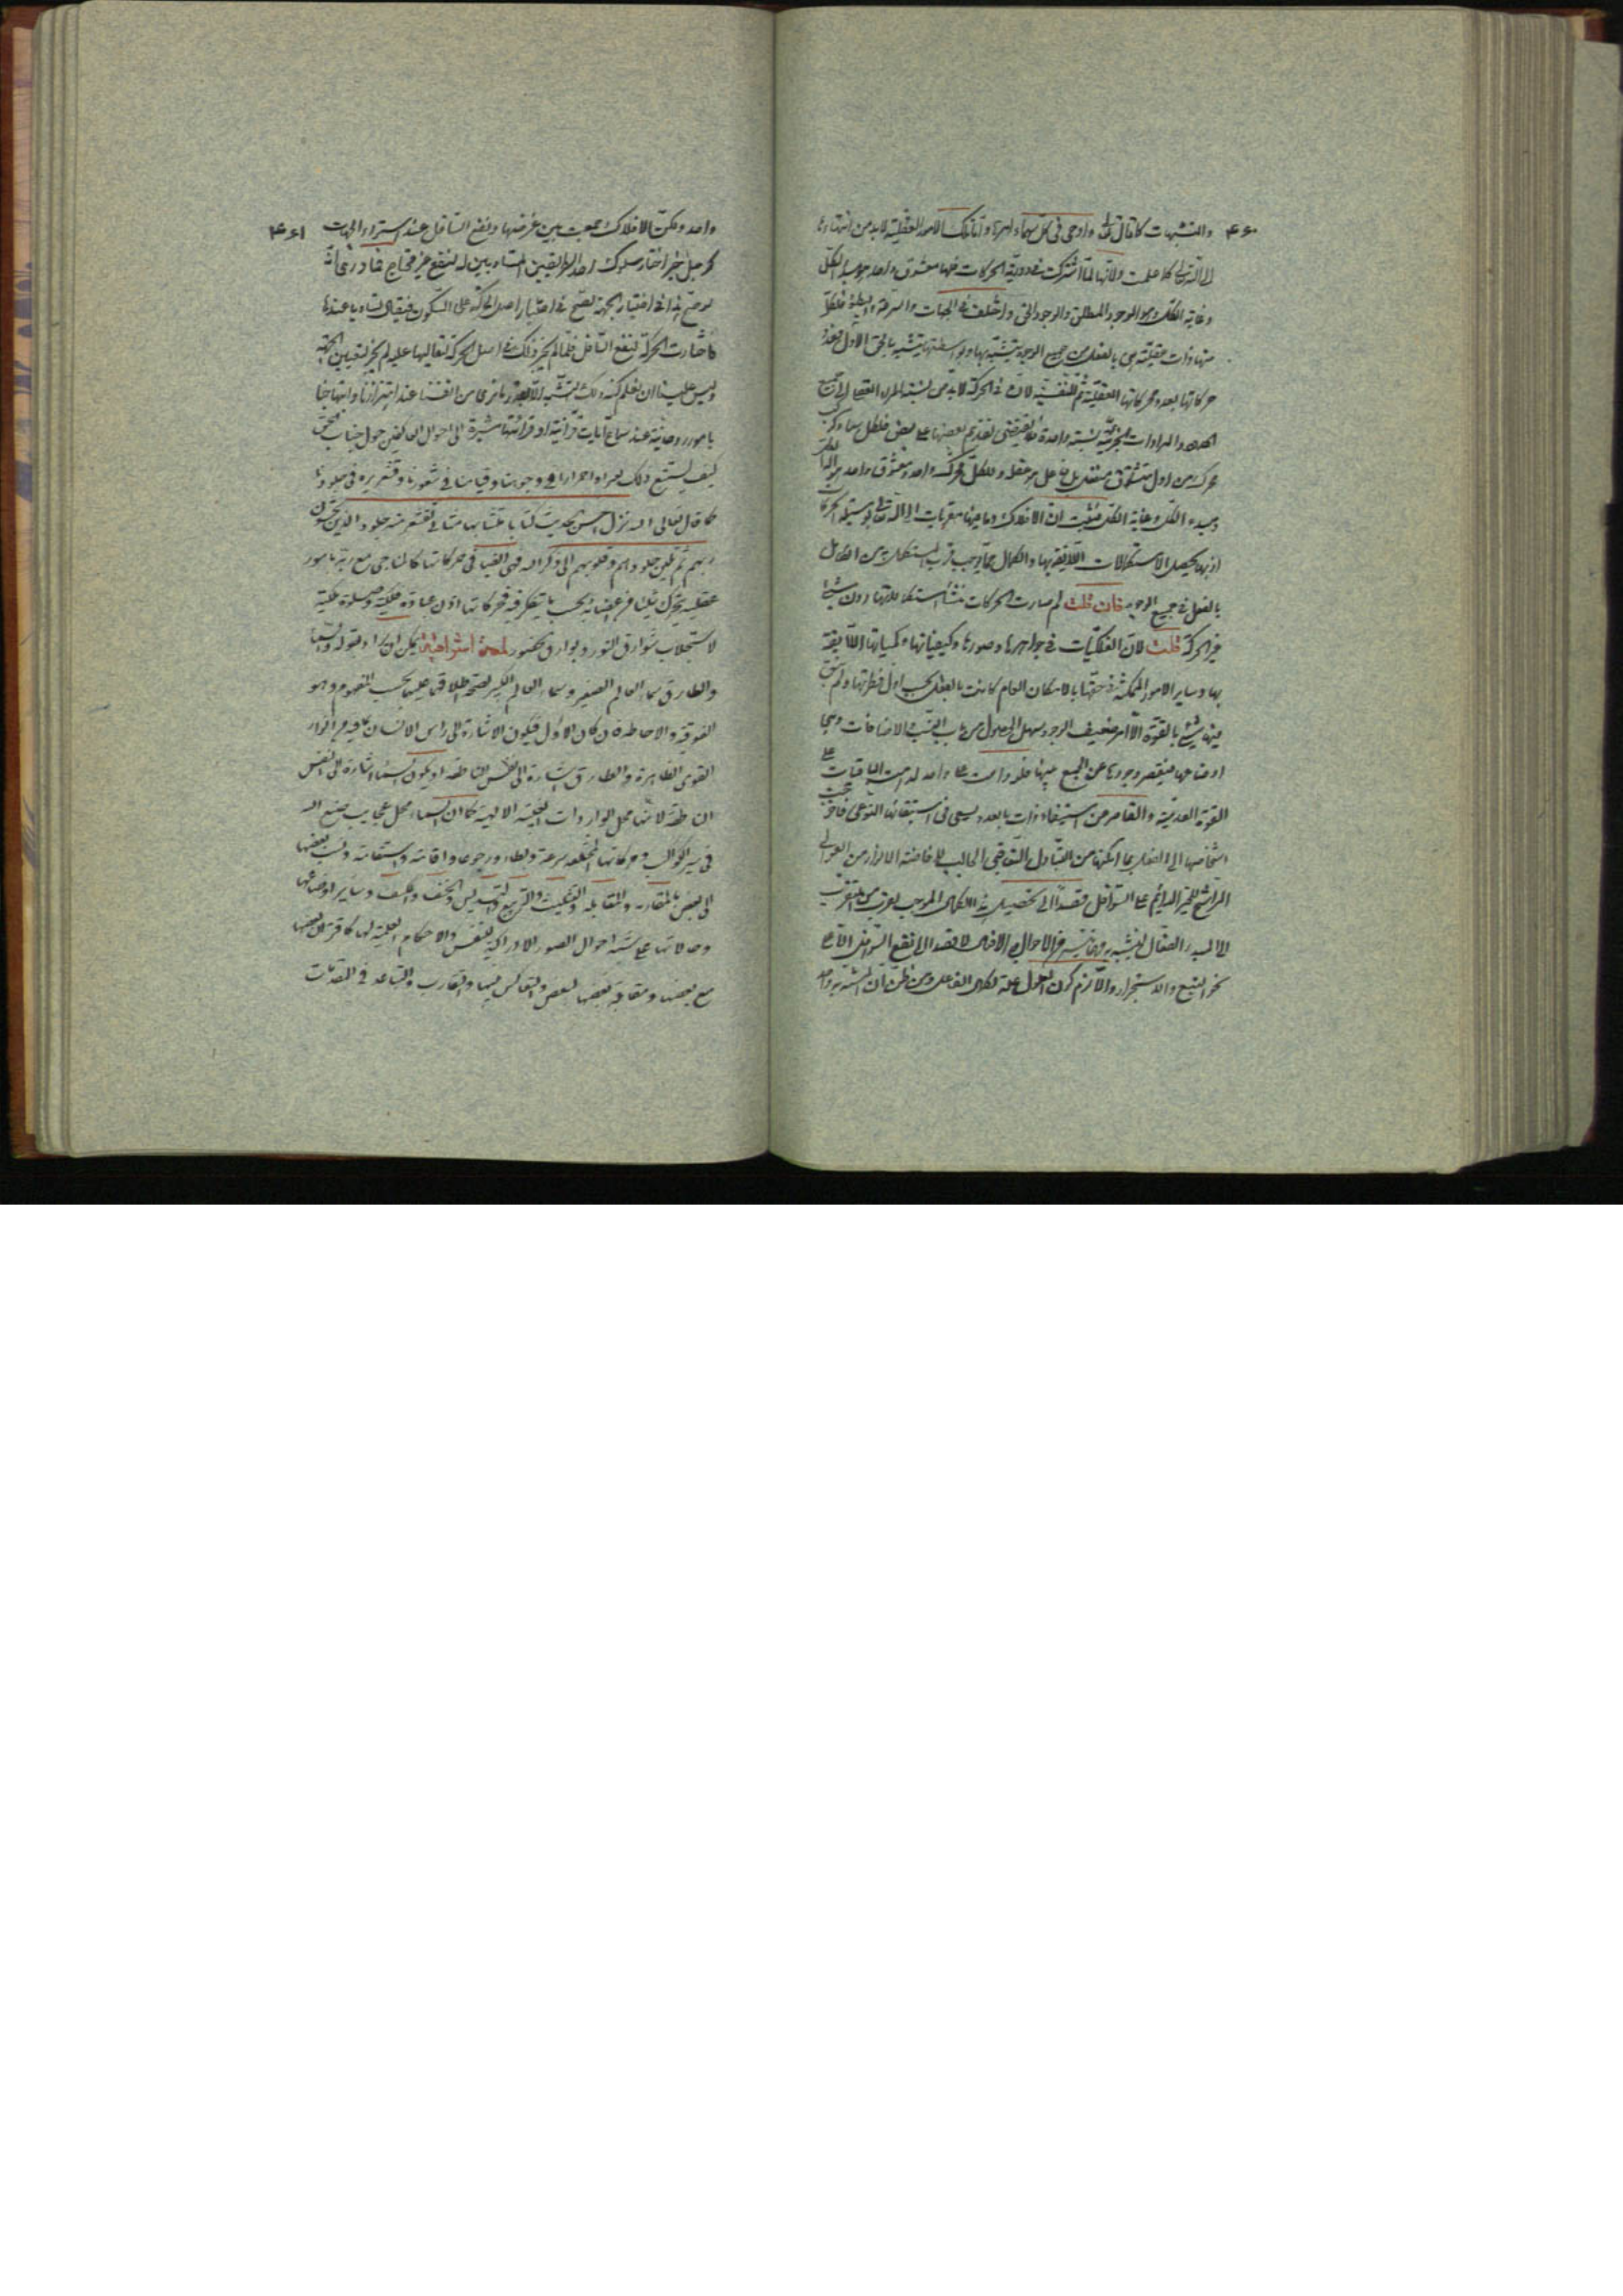 ۴۶۰
والتشبهات كما قال تعالى واوحى في كل سماء امرها وتلك الامور العقلية لابد من انتهائها
الى الله تعالى كما علمت ولانها لما اشتركت في دورية الحركات فلها معشوق واحد هو مبدء الكل
وغاية الكل وهو الوجود المطلق والوجود الحق واختلفت في الجهات والسرعة والبطؤ فلكل
منها ذات عقلية هي بالفعل من جميع الوجوه يتشبه بها وبواسطتها يتشبه بالحق الاول
حركاتها بعدد محركاتها العقلية ثم النفسية لان في الحركة لابد من
والارادات الجزئية نسبة واحدة بعضها على بعض فلكل سماء
محرك من اول وللكل محرك واحد ومعشوق واحد هو اله
ومبدء الكل وغاية الكل فثبت ان الافلاك وما فيها متقربات الى الله تعالى بوسيلة الحركات
اذ بها يحصل الاستكمالات اللايقة بها والكمال مما يوجب قرب المستكمل به من الكامل
بالفعل في جميع الوجوه فان قلت لم صارت الحركات منشأ استكمالاتها دون شيء
غير الحركة قلت لان الفلكيات في جواهرها وصورها وكيفياتها وكمياتها اللايقة
بها وساير الامور الممكنة في حقها بالامكان العام كانت بالفعل بحسب اول فطرتها ولم يبق
فيها شيء بالقوة الا امر ضعيف الوجود سهل الحصول من باب النسب والاضافات وهي
اوضاعها فيقصر وجودها عن الجمع فيها فلو دامت على واحد لدامت الباقيات على
القوة العدمية والقاصر عن استيفاء ذات بالعدد يسعى في استبقائها النوعي فاخرجت
اشخاصها الى الفعل بما امكنها من التبادل التعاقبي الجالب لافاضة الانوار من العوالي
الراشح للخير الدائم على السوافل قصدا الى تحصيل هذا الكمال الموجب لضرب من التقرب
الى المبدء الفعال والتشبه به في الاحوال والافعال لا قصد الى نفع السوافل الا على
نحو التبع والاستجرار والا لزم كون المعلول علة لكمال الفاعل ومن ظن ان المتشبه به واحد
۴۶۱
واحد ولكن الافلاك جمعت بين غرضها ونفع السافل عند استواء الجهات
كرجل خير اختار سلوك احد الطريقين المتساويين له لنفع غير محتاج
لو صح هذا في اختيار الجهة لصح في اختيار اصل الحركة على السكون فيقال تساويا عندها
فاختارت الحركة لنفع السافل فلما لم يجز ذلك في اصل الحركة لتعاليها عليه لم يجز لتعيين الجهة
وليس علينا ان نعلم كنه ذلك التشبه الا بقدر ما نرى من انفسنا عند اهتزازنا وابتهاجنا
بامور روحانية عند سماع آيات قرآنية او قرائتها مشيرة الى احوال العاكفين حول جناب الحق
كيف يستتبع ذلك احمرارا في وجوهنا وقياما في شعورنا وقشعريرة في جلودنا
كما قال تعالى الله نزل احسن الحديث كتابا متشابها مثاني تقشعر منه جلود الذين يخشون
ربهم ثم تلين جلودهم وقلوبهم الى ذكر الله فهي ايضا في حركاتها كالمناجي مع ربه بامور
عقلية يتحرك شيئا من اعضائه بحسب ما يتفكر فيه فحركاتها اذن عبادة فلكية وصلوة ملكية
لاستجلاب شوارق النور وبوارق الحضور لمعة اشراقية يمكن ان يراد بقوله والسماء
والطارق سماء العالم الصغير وسماء العالم الكبير لصحة اطلاق عليهما بحسب المفهوم وهو
الفوقية والاحاطة فان كان الاول فيكون الاشارة الى راس الانسان بما فيه من انوار
القوى الظاهرة والطارق اشارة الى النفس الناطقة او يكون السماء اشارة الى النفس
الناطقة لانها محل الواردات العجيبة الالهية كما ان السماء محل عجايب صنع الله
في سير الكواكب وحركاتها المختلفة سرعة وبطاء ورجوعا واقامة واستقامة ونسب بعضها
الى بعض بالمقارنة والمقابلة والتثليث والتربيع والتسديس والخسف والكسف وساير اوضاعها
وحالاتها على شبه احوال الصور الادراكية للنفس والاحكام العلمية لها كاقتران بعضها
مع بعض ومقابلة بعضها لبعض والتعاكس فيها والتقارب والتباعد في المقدمات